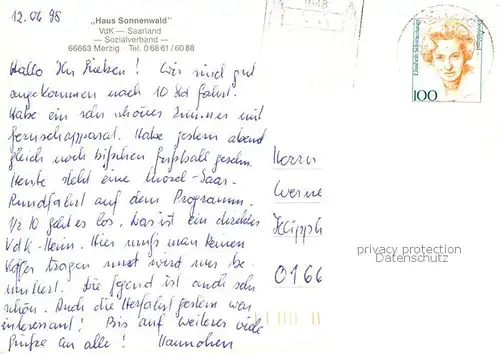 12.04 98
„Haus Sonnenwald"
VdK — Saarland
— Sozialverband —
66663 Merzig Tel. 0 68 61 / 60 88
Hallo Ihr Lieben! Wir sind gut
angekommen nach 10 Std fahrt.
Habe ein sehr schönes Zimmer mit
fernsehapparat. Habe gestern abend
gleich noch bißchen fußball gesehn.
Heute steht eine Mosel-Saar-
Rundfahrt auf dem Programm.
1/2 10 geht es los. Das ist ein direktes
VdK-Heim. Hier muß man keinen
Koffer tragen und wird nur be-
muttert. Die Gegend ist auch sehr
schön. Auch die Herfahrt gestern war
interessant! Bis auf weiteres viele
Grüße an alle! Hannchen
Herrn
Werne
Klipph
0166
100
Elisabeth Schwarzhaupt
Deutschland
privacy protection
Datenschutz